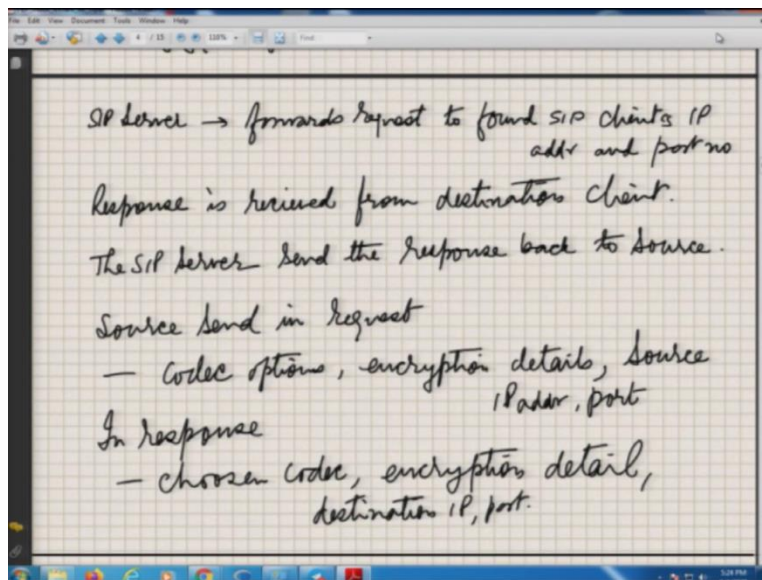 File Edit View Document Tools Window Help
4 / 15 118% Find
SIP Server → forwards request to found SIP client's IP
addr and port no
Response is recieved from destination client.
The SIP Server send the response back to source.
Source send in request
— codec options, encryption details, source
IP addr, port
In response
— choosen codec, encryption detail,
destination IP, port.
5:28 PM